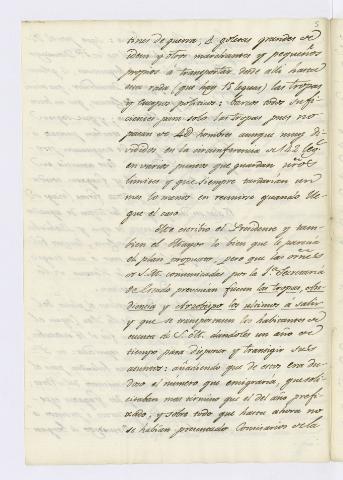 5
tines de guerra; 4 goletas grandes de
idem y otros marchantes y pequeños
propios a transportar desde alla hasta
esta rada (que hay 15 leguas) las tropas
y cuerpos politicos: barcos todos sufi-
cientes para solo las tropas pues no
pasan de 4D hombres aunque muy di-
vididos en la circunferencia de 142 leg.s
en varios puntos que guardan nros
limites y que siempre tardarian un
mes lo menos en reunirse quando lle-
gue el caso.
Ha escribo el Presidente y tam-
bien el Mayor lo bien que le parecia
el plan propuesto, pero que las orns
de S.M. comunicadas por la 1.a Secretaria
de Estado prevenian fuesen las tropas, Au-
diencia y Arzobispo los ultimos a salir
y que se transporten los habitantes de
cuenta de S.M. dandoles un año de
tiempo para disponer y transigir sus
asuntos: añadiendo que de estos era du-
doso el numero que emigraria, que soli-
citaban mas termino que el del año prefi-
xado; y sobre todo que hasta ahora no
se habian presentado Comisarios de la